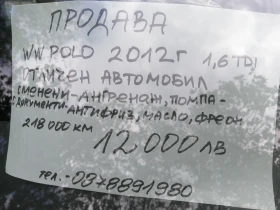 ПРОДАВА
WW POLO 2012г 1,6 TDI
ОТЛИЧЕН АВТОМОБИЛ
СМЕНЕНИ-АНГРЕНАЖ, ПОМПА-
С ДОКУМЕНТИ-АНТИФРИЗ, МАСЛО, ФРЕОН
218 000 КМ
12 000 ЛВ
ТЕЛ.-0878891980